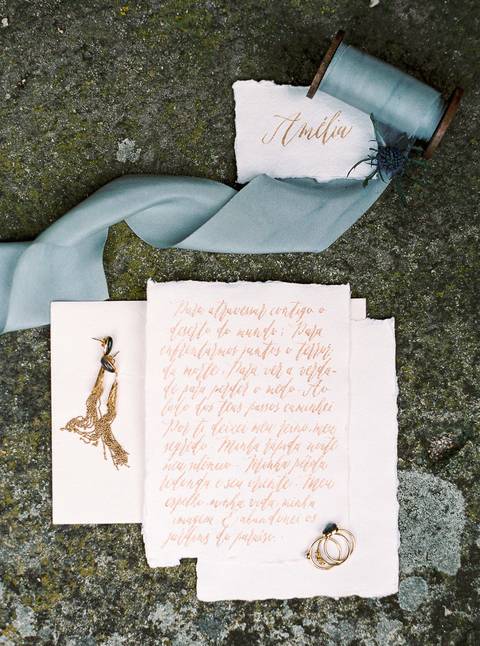 Amélia
Para atravessar contigo o
deserto do mundo; Para
enfrentarmos juntos o terror
da morte. Para ver a verda-
de para perder o medo. Ao
lado dos teus passos caminhei.
Por ti deixei meu reino, meu
segredo. Minha rápida noite
meu silêncio. Minha pérola
redonda e seu oriente. Meu
espelho, minha vida, minha
imagem. E abandonei os
jardins do paraíso.